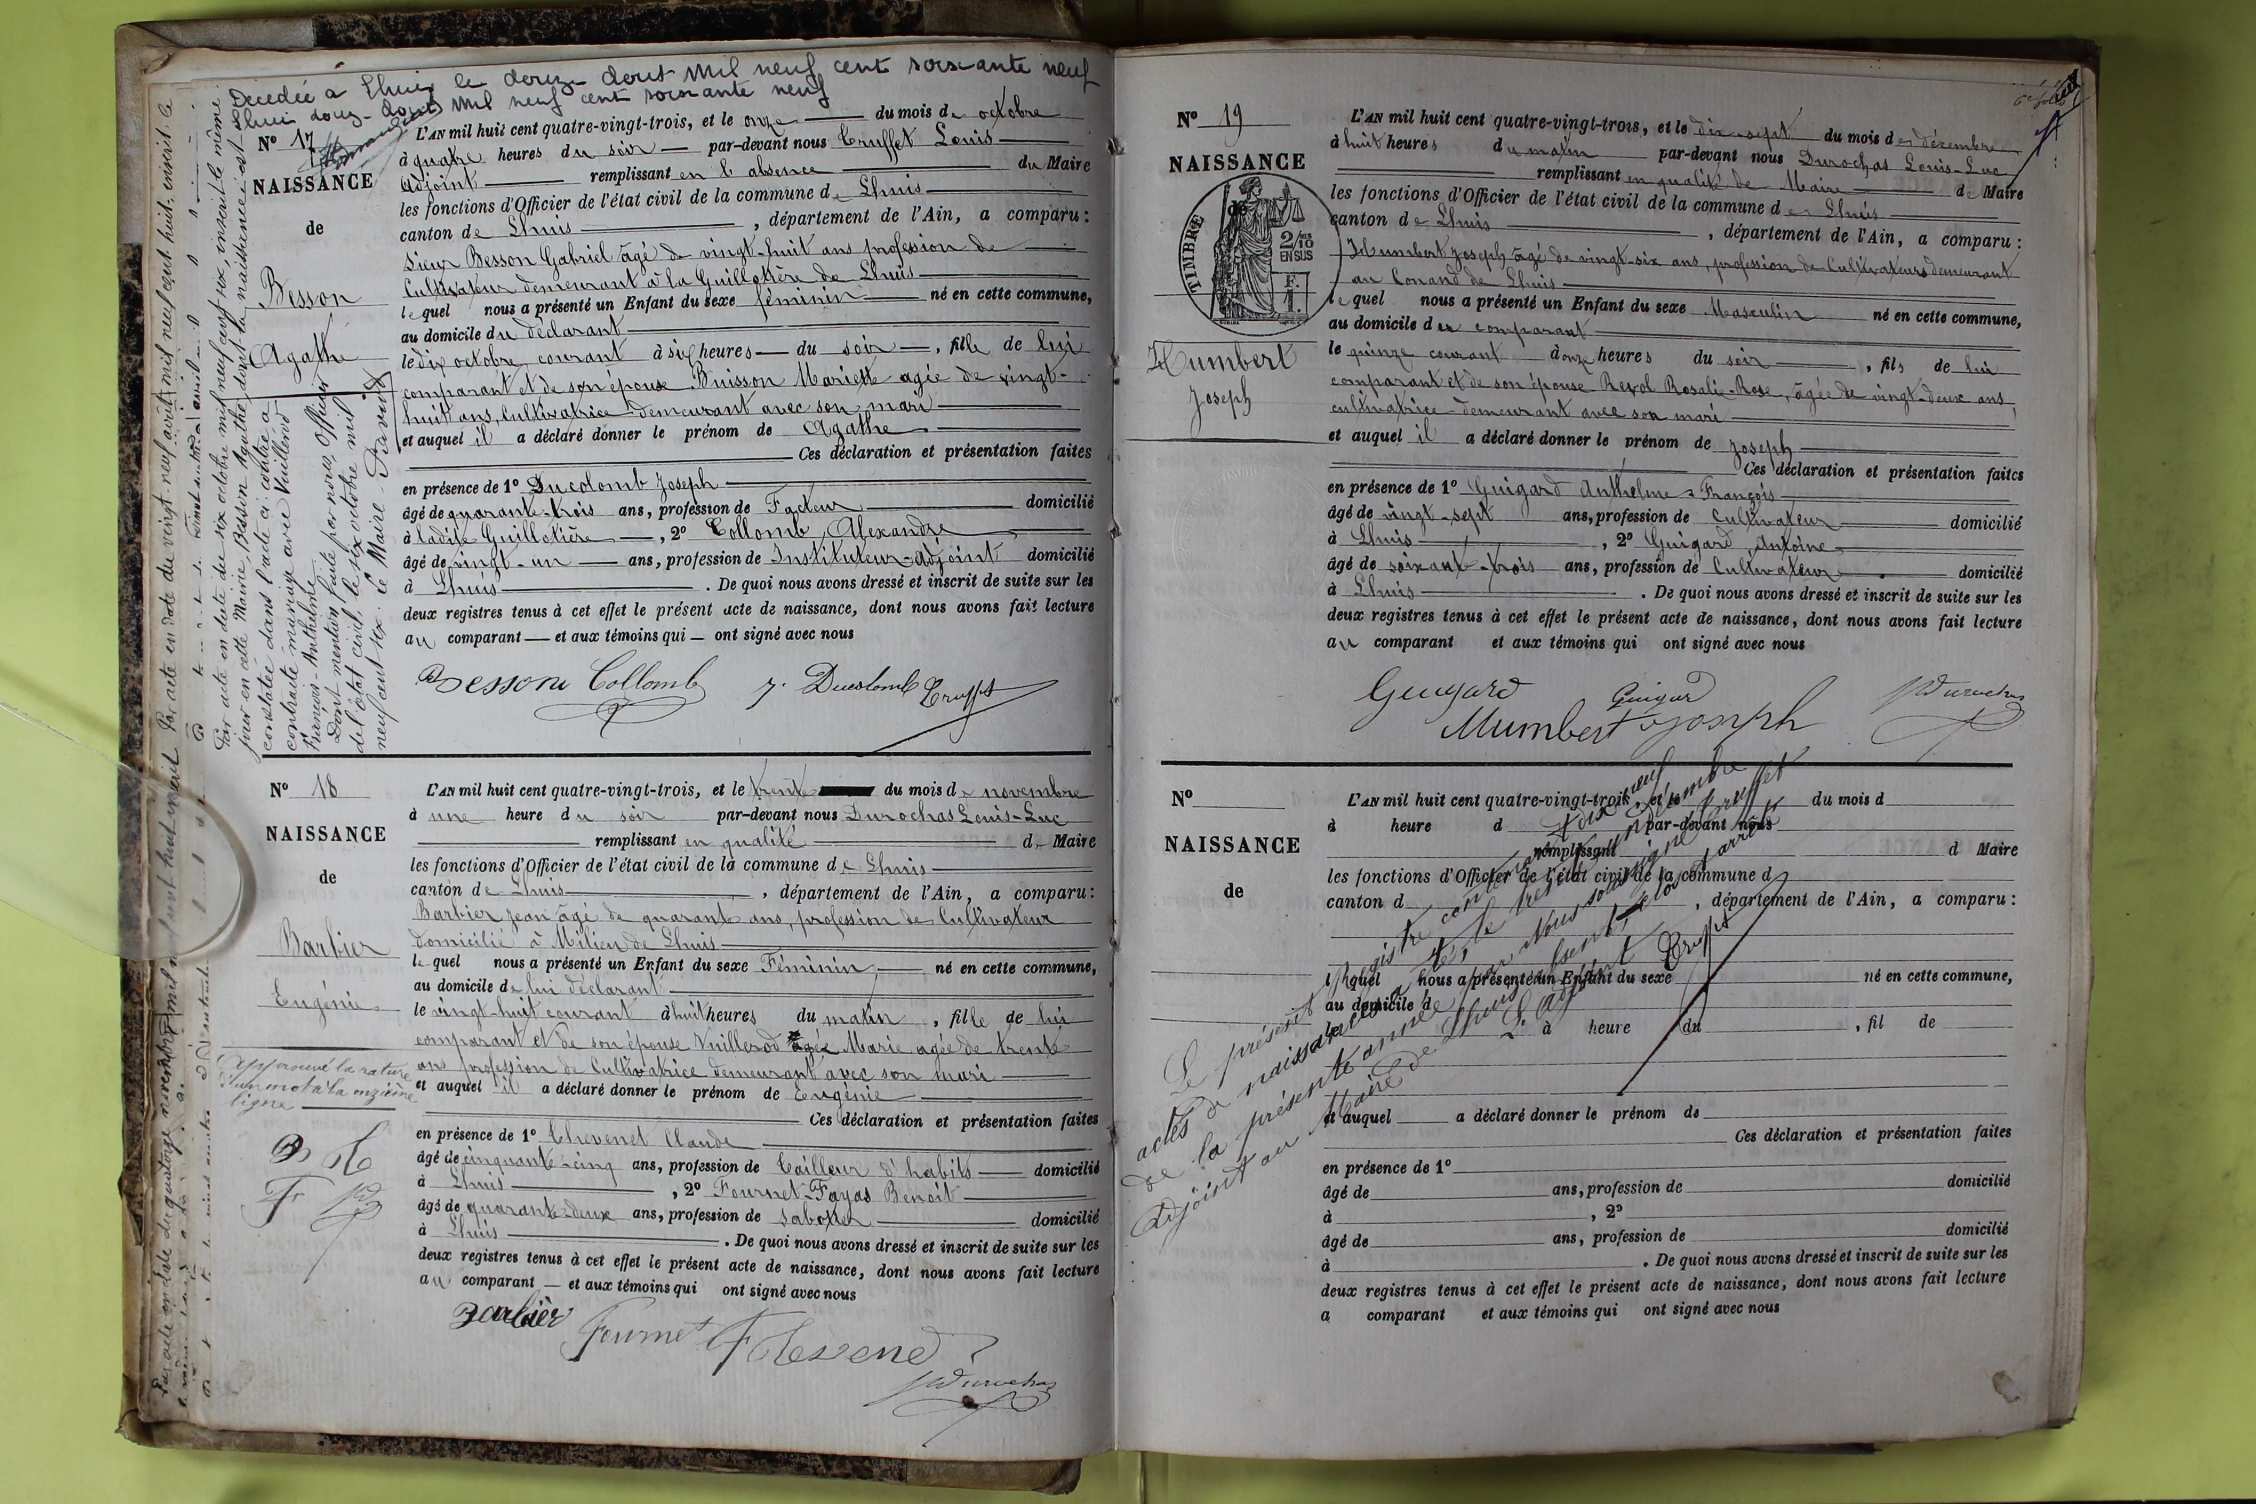 Décédée à Lhuis le douze Aout mil neuf cent soixante neuf
Lhuis douze Aout mil neuf cent soixante neuf
No 17
NAISSANCE
de
Besson
Agathe
L'AN mil huit cent quatre-vingt-trois, et le onze du mois de octobre
à quatre heures du soir par-devant nous Truffet Louis
Adjoint remplissant en l'absence du Maire
les fonctions d'Officier de l'état civil de la commune de Lhuis
canton de Lhuis, département de l'Ain, a comparu :
Sieur Besson Gabriel âgé de vingt-huit ans profession de
Cultivateur demeurant à la Guillotière de Lhuis
lequel nous a présenté un Enfant du sexe féminin né en cette commune,
au domicile du déclarant
le dix octobre courant à six heures du soir, fille de lui
comparant et de son épouse Buisson Mariette agée de vingt-
huit ans, Cultivatrice demeurant avec son mari
et auquel il a déclaré donner le prénom de Agathe
Ces déclaration et présentation faites
en présence de 1o Ducolomb Joseph
âgé de quarante-trois ans, profession de Facteur domicilié
à ladite Guillotière, 2o Collomb Alexandre
âgé de vingt-un ans, profession de Instituteur-adjoint domicilié
à Lhuis. De quoi nous avons dressé et inscrit de suite sur les
deux registres tenus à cet effet le présent acte de naissance, dont nous avons fait lecture
au comparant et aux témoins qui ont signé avec nous
Besson Collomb J. Ducolomb Truffet
Par acte en date du six octobre mil neuf cent six, inscrit le même
jour en cette Mairie, Besson Agathe dont la naissance est
constatée dans l'acte ci-contre a
contracté mariage avec Vuillerod
François-Anthelme
Dont mention faite par nous Officier
de l'état civil, le six octobre mil
neuf cent six. Le Maire
No 18
NAISSANCE
de
Barbier
Eugénie
L'AN mil huit cent quatre-vingt-trois, et le trente du mois de novembre
à une heure du soir par-devant nous Durochas Louis-Luc
remplissant en qualité de Maire
les fonctions d'Officier de l'état civil de la commune de Lhuis
canton de Lhuis, département de l'Ain, a comparu :
Barbier Jean âgé de quarante ans, profession de Cultivateur
domicilié à Milieu de Lhuis
lequel nous a présenté un Enfant du sexe Féminin né en cette commune,
au domicile de lui déclarant
le vingt-huit courant à huit heures du matin, fille de lui
comparant et de son épouse Vuillerod Marie agée de trente
ans profession de Cultivatrice demeurant avec son mari
et auquel il a déclaré donner le prénom de Eugénie
Ces déclaration et présentation faites
en présence de 1o Chevenet Claude
âgé de cinquante-cinq ans, profession de Tailleur d'habits domicilié
à Lhuis, 2o Fournet-Fayas Benoit
âgé de quarante-deux ans, profession de sabotier domicilié
à Lhuis. De quoi nous avons dressé et inscrit de suite sur les
deux registres tenus à cet effet le présent acte de naissance, dont nous avons fait lecture
au comparant et aux témoins qui ont signé avec nous
Approuvé la rature
d'un mot à la onzième
ligne
Barbier Fournet
No 19
NAISSANCE
de
TIMBRE
2/10
EN SUS
F.
1.
Humbert
Joseph
L'AN mil huit cent quatre-vingt-trois, et le dix-sept du mois de décembre
à huit heures du matin par-devant nous Durochas Louis-Luc
remplissant en qualité de Maire de Maire
les fonctions d'Officier de l'état civil de la commune de Lhuis
canton de Lhuis, département de l'Ain, a comparu :
Humbert Joseph âgé de vingt-six ans, profession de Cultivateur demeurant
au Conand de Lhuis
lequel nous a présenté un Enfant du sexe Masculin né en cette commune,
au domicile du comparant
le quinze courant à onze heures du soir, fils de lui
comparant et de son épouse Revol Rosalie-Rose, âgée de vingt-deux ans,
cultivatrice demeurant avec son mari
et auquel il a déclaré donner le prénom de Joseph
Ces déclaration et présentation faites
en présence de 1o Guigard Anthelme François
âgé de vingt-sept ans, profession de Cultivateur domicilié
à Lhuis, 2o Guigard Antoine
âgé de soixante-trois ans, profession de Cultivateur domicilié
à Lhuis. De quoi nous avons dressé et inscrit de suite sur les
deux registres tenus à cet effet le présent acte de naissance, dont nous avons fait lecture
au comparant et aux témoins qui ont signé avec nous
Guigard Guigard
Humbert Joseph
No
NAISSANCE
de
L'AN mil huit cent quatre-vingt-trois, et le du mois d
à heure d par-devant nous
remplissant d Maire
les fonctions d'Officier de l'état civil de la commune d
canton d, département de l'Ain, a comparu :
l quel nous a présenté un Enfant du sexe né en cette commune,
au domicile d
le à heure du, fil de
et auquel a déclaré donner le prénom de
Ces déclaration et présentation faites
en présence de 1o
âgé de ans, profession de domicilié
à, 2o
âgé de ans, profession de domicilié
à. De quoi nous avons dressé et inscrit de suite sur les
deux registres tenus à cet effet le présent acte de naissance, dont nous avons fait lecture
a comparant et aux témoins qui ont signé avec nous
Le présent registre contenant dix neuf
actes de naissance a été le trente un décembre
de la présente année par Nous soussigné Truffet
adjoint au Maire de Lhuis absent, clos et arrêté
L'adjoint Truffet